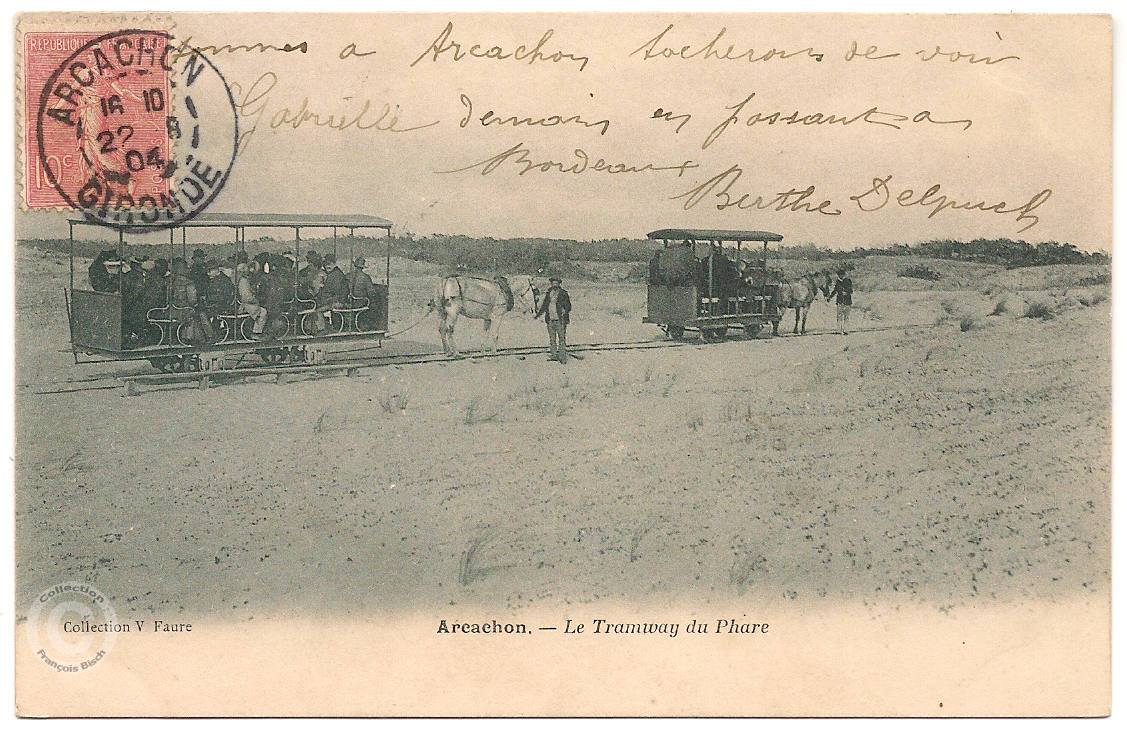 REPUBLIQUE FRANÇAISE
10c
ARCACHON
16 10
22 8
04
GIRONDE
sommes a Arcachon tacherons de voir
Gabrielle demain en passant a
Bordeaux
Berthe Delpuch
Collection
François Bisch
Collection V Faure
Arcachon. — Le Tramway du Phare